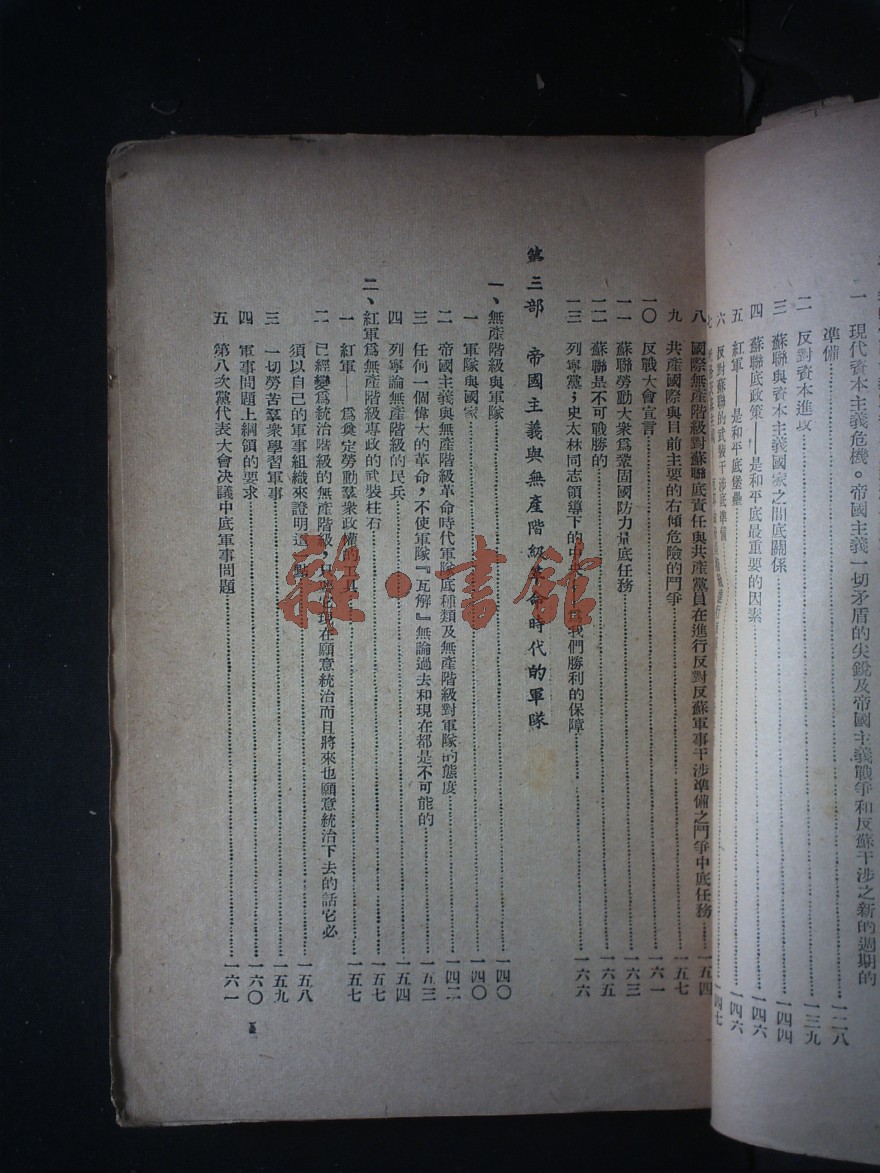 一 現代資本主義危機。帝國主義一切矛盾的尖銳及帝國主義戰爭和反蘇干涉之新的週期的
準備……一二八
二 反對資本進攻……一三九
三 蘇聯與資本主義國家之間底關係……一四四
四 蘇聯底政策——是和平底最重要的因素……一四六
五 紅軍——是和平底堡壘……一四六
六 反對蘇聯的武裝干涉底準備……一四七
八 國際無產階級對蘇聯底責任與共產黨員在進行反對反蘇軍事干涉準備之鬥爭中底任務……一五四
九 共產國際與目前主要的右傾危險的鬥爭……一五七
一〇 反戰大會宣言……一六一
一一 蘇聯勞動大衆爲鞏固國防力量底任務……一六三
一二 蘇聯是不可戰勝的……一六五
一三 列寧黨;史太林同志領導下的中 我們勝利的保障……一六六
第三部 帝國主義與無產階級革命時代的軍隊
一、無產階級與軍隊……一四〇
一 軍隊與國家……一四〇
二 帝國主義與無產階級革命時代軍隊底種類及無產階級對軍隊的態度……一四二
三 任何一個偉大的革命,不使軍隊『瓦解』無論過去和現在都是不可能的……一五三
四 列寧論無產階級的民兵……一五四
二、紅軍爲無產階級專政的武裝柱石……一五七
一 紅軍——爲奠定勞動羣衆政權的工具……一五七
二 已經變爲統治階級的無產階級,只要它現在願意統治而且將來也願意統治下去的話它必
須以自己的軍事組織來證明這一點……一五八
三 一切勞苦羣衆學習軍事……一五九
四 軍事問題上綱領的要求……一六〇
五 第八次黨代表大會決議中底軍事問題……一六一
五
雜·書館